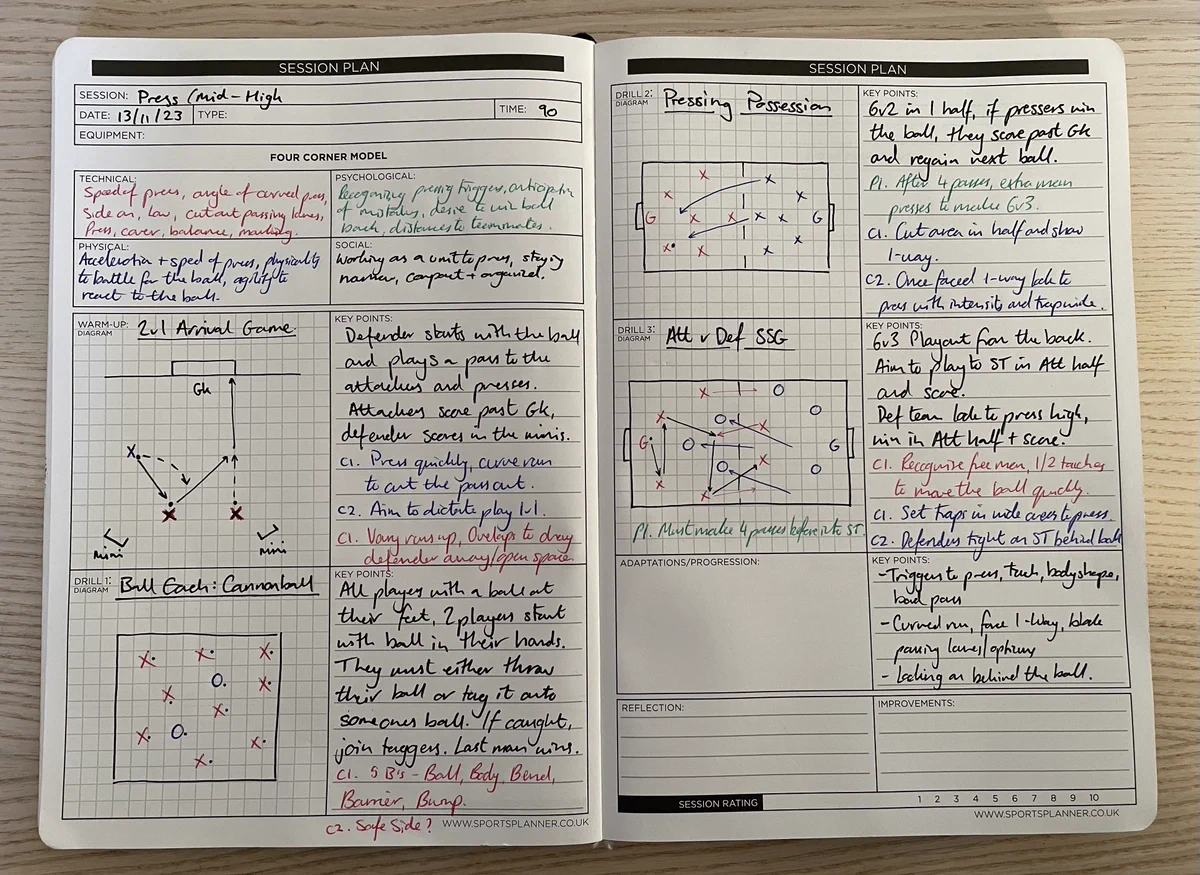 SESSION PLAN
SESSION: Press (Mid-High
DATE: 13/11/23 TYPE: TIME: 90
EQUIPMENT:
FOUR CORNER MODEL
TECHNICAL:
Speed of press, angle of curved press,
Side on, low, cut out passing lanes,
Press, cover, balance, marking.
PSYCHOLOGICAL:
Recognising pressing triggers, anticipation
of mistakes, desire to win ball
back, distances to teammates.
PHYSICAL:
Acceleration + speed of press, physicality
to battle for the ball, agility to
react to the ball.
SOCIAL:
Working as a unit to press, staying
narrow, compact + organized.
WARM-UP:
DIAGRAM
2v1 Arrival Game.
Gk
X
X X
mini mini
KEY POINTS:
Defender starts with the ball
and plays a pass to the
attackers and presses.
Attackers score past Gk,
defender scores in the minis.
C1. Press quickly, curve run
to cut the pass out.
C2. Aim to dictate play 1v1.
C1. Vary runs up, Overlaps to drag
defender away/open space.
DRILL 1:
DIAGRAM
Ball Each: Cannonball
X X X
O X
X
X
X O X
X
KEY POINTS:
All players with a ball at
their feet, 2 players start
with ball in their hands.
They must either throw
their ball or tag it onto
someones ball. If caught,
join taggers. Last man wins.
C1. 5 B's - Ball, Body, Bend,
Barrier, Bump.
C2. Safe Side?
WWW.SPORTSPLANNER.CO.UK
SESSION PLAN
DRILL 2:
DIAGRAM
Pressing Possession
X X
X X
G X X X X G
X X X X
KEY POINTS:
6v2 in 1 half, if pressers win
the ball, they score past Gk
and regain next ball.
P1. After 4 passes, extra man
presses to make 6v3.
C1. Cut area in half and show
1-way.
C2. Once forced 1-way look to
press with intensity and trap wide.
DRILL 3:
DIAGRAM
Att v Def SSG
X O
X O X O
G O G
X O X O
X
P1. Must make 4 passes before into ST.
KEY POINTS:
6v3 Playout from the back.
Aim to play to ST in Att half
and score.
Def team look to press high,
win in Att half + score.
C1. Recognise free man, 1/2 touches
to move the ball quickly.
C1. Set traps in wide areas to press.
C2. Defenders tight on ST behind ball
ADAPTATIONS/PROGRESSION:
KEY POINTS:
-Triggers to press, touch, body shape,
bad pass
-Curved run, force 1-Way, block
passing lanes/options
- Locking on behind the ball.
REFLECTION:
IMPROVEMENTS:
SESSION RATING 1 2 3 4 5 6 7 8 9 10
WWW.SPORTSPLANNER.CO.UK